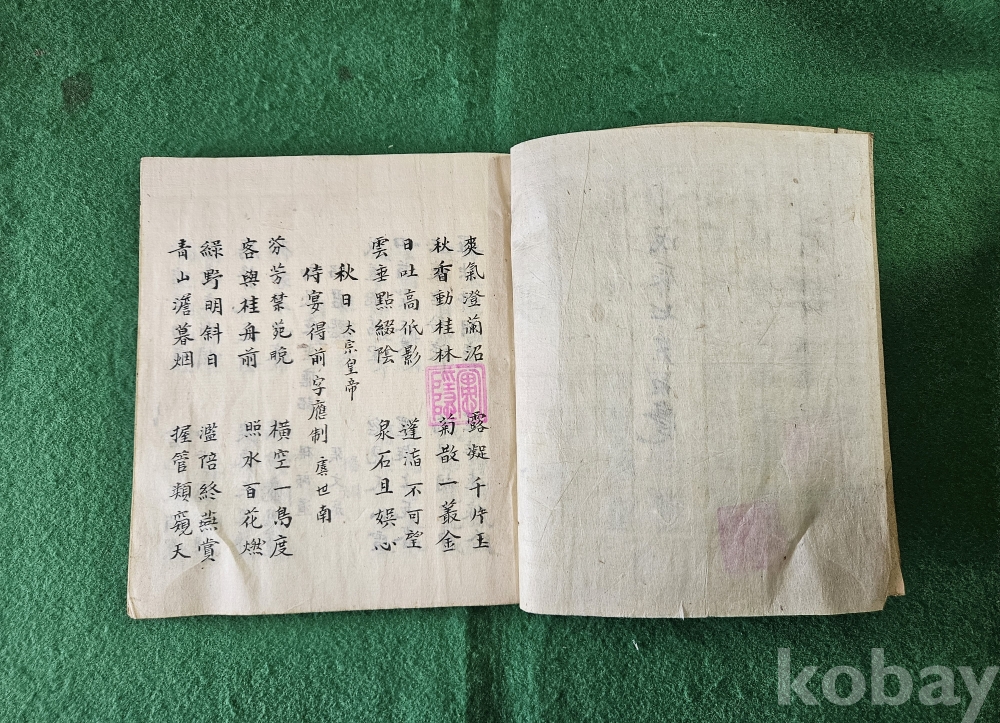 爽氣澄蘭沼 露凝千片玉
秋香動桂林 菊散一叢金
日吐高低影 蓬不可望
雲垂點綴陰 泉石且娛心
秋日 太宗皇帝
侍宴得前字應制 虞世南
芬芳禁苑晚 橫空一鳥度
客與桂舟前 照水百花燃
綠野明斜日 濫陪終燕賞
青山澹暮烟 握管類窺天
kobay